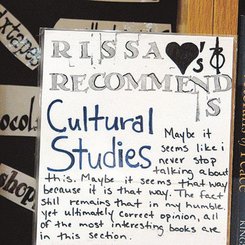 RISSA ♥'s &
RECOMMENDS
Cultural
Studies
Maybe it
seems like i
never stop
talking about
this. Maybe it seems that way
because it is that way. The fact
still remains that in my humble
yet ultimately correct opinion, all
of the most interesting books are
in this section.
mixtapes
shop